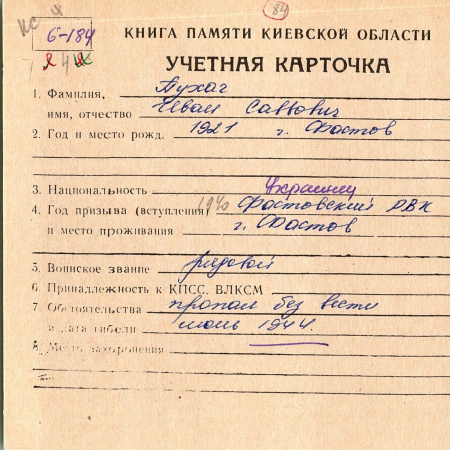 КС 4
84
6-184
КНИГА ПАМЯТИ КИЕВСКОЙ ОБЛАСТИ
УЧЕТНАЯ КАРТОЧКА
1. Фамилия, Пухач
имя, отчество Иван Саввович
2. Год и место рожд. 1921 г. Фастов
3. Национальность украинец
4. Год призыва (вступления) 1940 Фастовский РВК
и место проживания г. Фастов
5. Воинское звание рядовой
6. Принадлежность к КПСС, ВЛКСМ
7. Обстоятельства пропал без вести
и дата гибели июль 1944.
8. Место захоронения